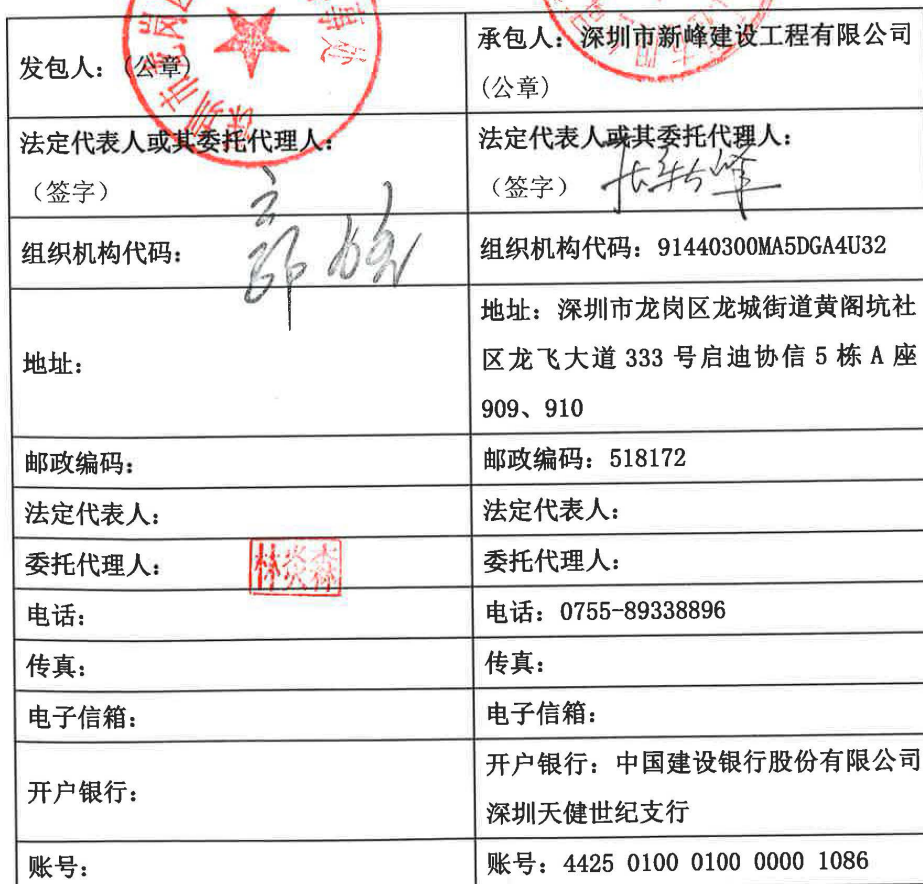 发包人：（公章）
承包人：深圳市新峰建设工程有限公司
（公章）
法定代表人或其委托代理人：
（签字）
法定代表人或其委托代理人：
（签字）
组织机构代码：
组织机构代码：91440300MA5DGA4U32
地址：
地址：深圳市龙岗区龙城街道黄阁坑社
区龙飞大道 333 号启迪协信 5 栋 A 座
909、910
邮政编码：
邮政编码：518172
法定代表人：
法定代表人：
委托代理人：
林炎森
委托代理人：
电话：
电话：0755-89338896
传真：
传真：
电子信箱：
电子信箱：
开户银行：
开户银行：中国建设银行股份有限公司
深圳天健世纪支行
账号：
账号：4425 0100 0100 0000 1086